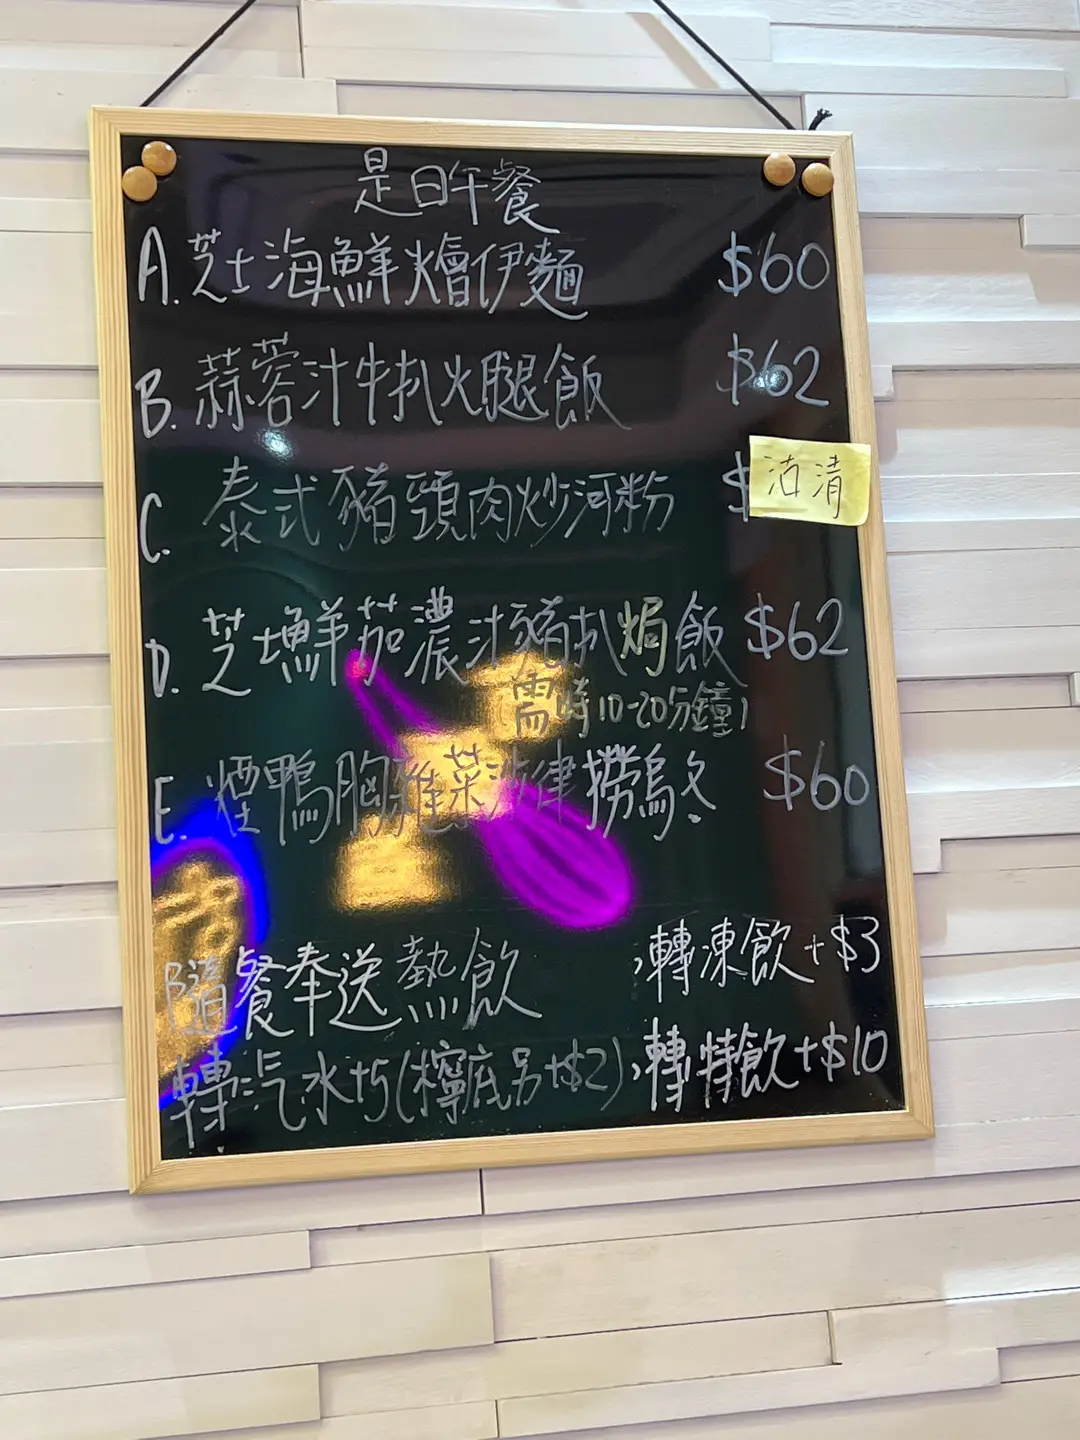 是日午餐
A. 芝士海鮮燴伊麵 $60
B. 蒜蓉汁牛扒火腿飯 $62
C. 泰式豬頸肉炒河粉 $ 沽清
D. 芝士鮮茄濃汁豬扒焗飯 $62
需時10-20分鐘)
E. 煙鴨胸雜菜沙律撈烏冬 $60
隨餐奉送熱飲 ,轉凍飲+$3
轉汽水+5(檸底另+$2),轉特飲+$10